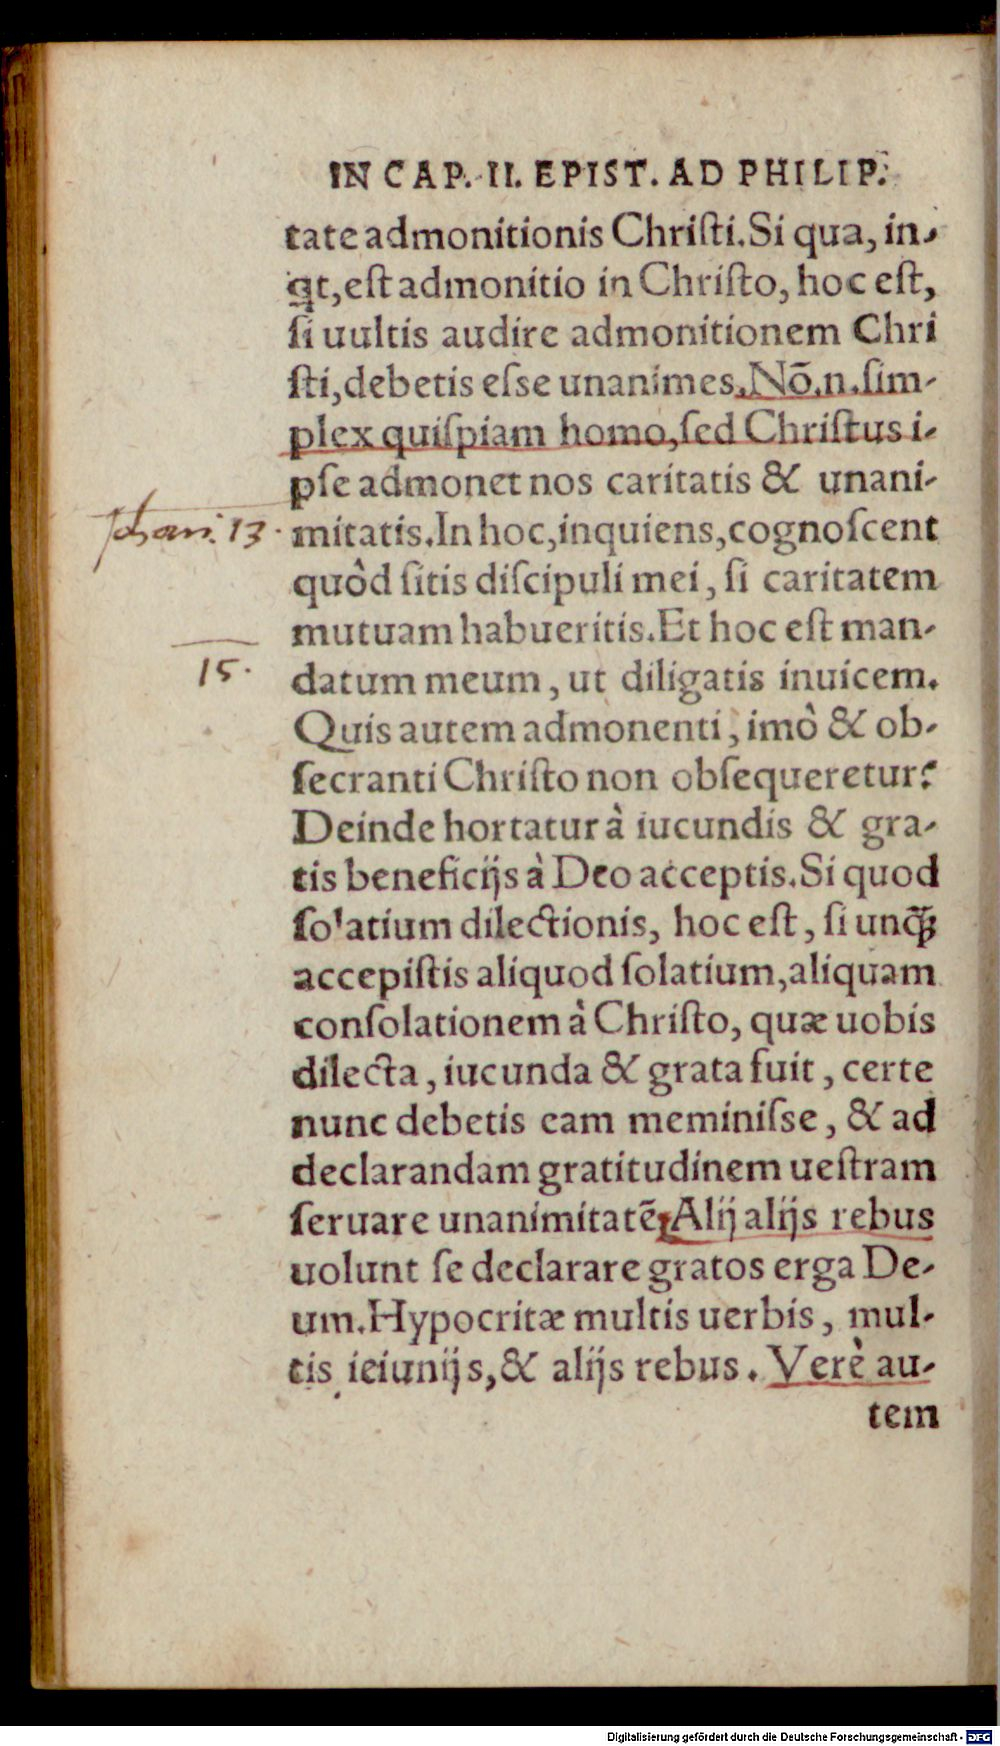 IN CAP. II. EPIST. AD PHILIP.
tate admonitionis Chriſti. Si qua, in-
q̇t, eſt admonitio in Chriſto, hoc eſt,
ſi uultis audire admonitionem Chri
ſti, debetis eſse unanimes. Nō.n. ſim-
plex quiſpiam homo, ſed Chriſtus i-
pſe admonet nos caritatis & unani-
Johan. 13. mitatis. In hoc, inquiens, cognoſcent
quòd ſitis diſcipuli mei, ſi caritatem
mutuam habueritis. Et hoc eſt man-
15. datum meum, ut diligatis inuicem.
Quis autem admonenti, imò & ob-
ſecranti Chriſto non obſequeretur?
Deinde hortatur à iucundis & gra-
tis beneficijs à Deo acceptis. Si quod
ſolatium dilectionis, hoc eſt, ſi unꝙ̃
accepiſtis aliquod ſolatium, aliquam
conſolationem à Chriſto, quæ uobis
dilecta, iucunda & grata fuit, certe
nunc debetis eam meminiſse, & ad
declarandam gratitudinem ueſtram
ſeruare unanimitatē. Alij alijs rebus
uolunt ſe declarare gratos erga De-
um. Hypocritæ multis uerbis, mul-
tis ieiunijs, & alijs rebus. Verè au-
tem
Digitalisierung gefördert durch die Deutsche Forschungsgemeinschaft - DFG